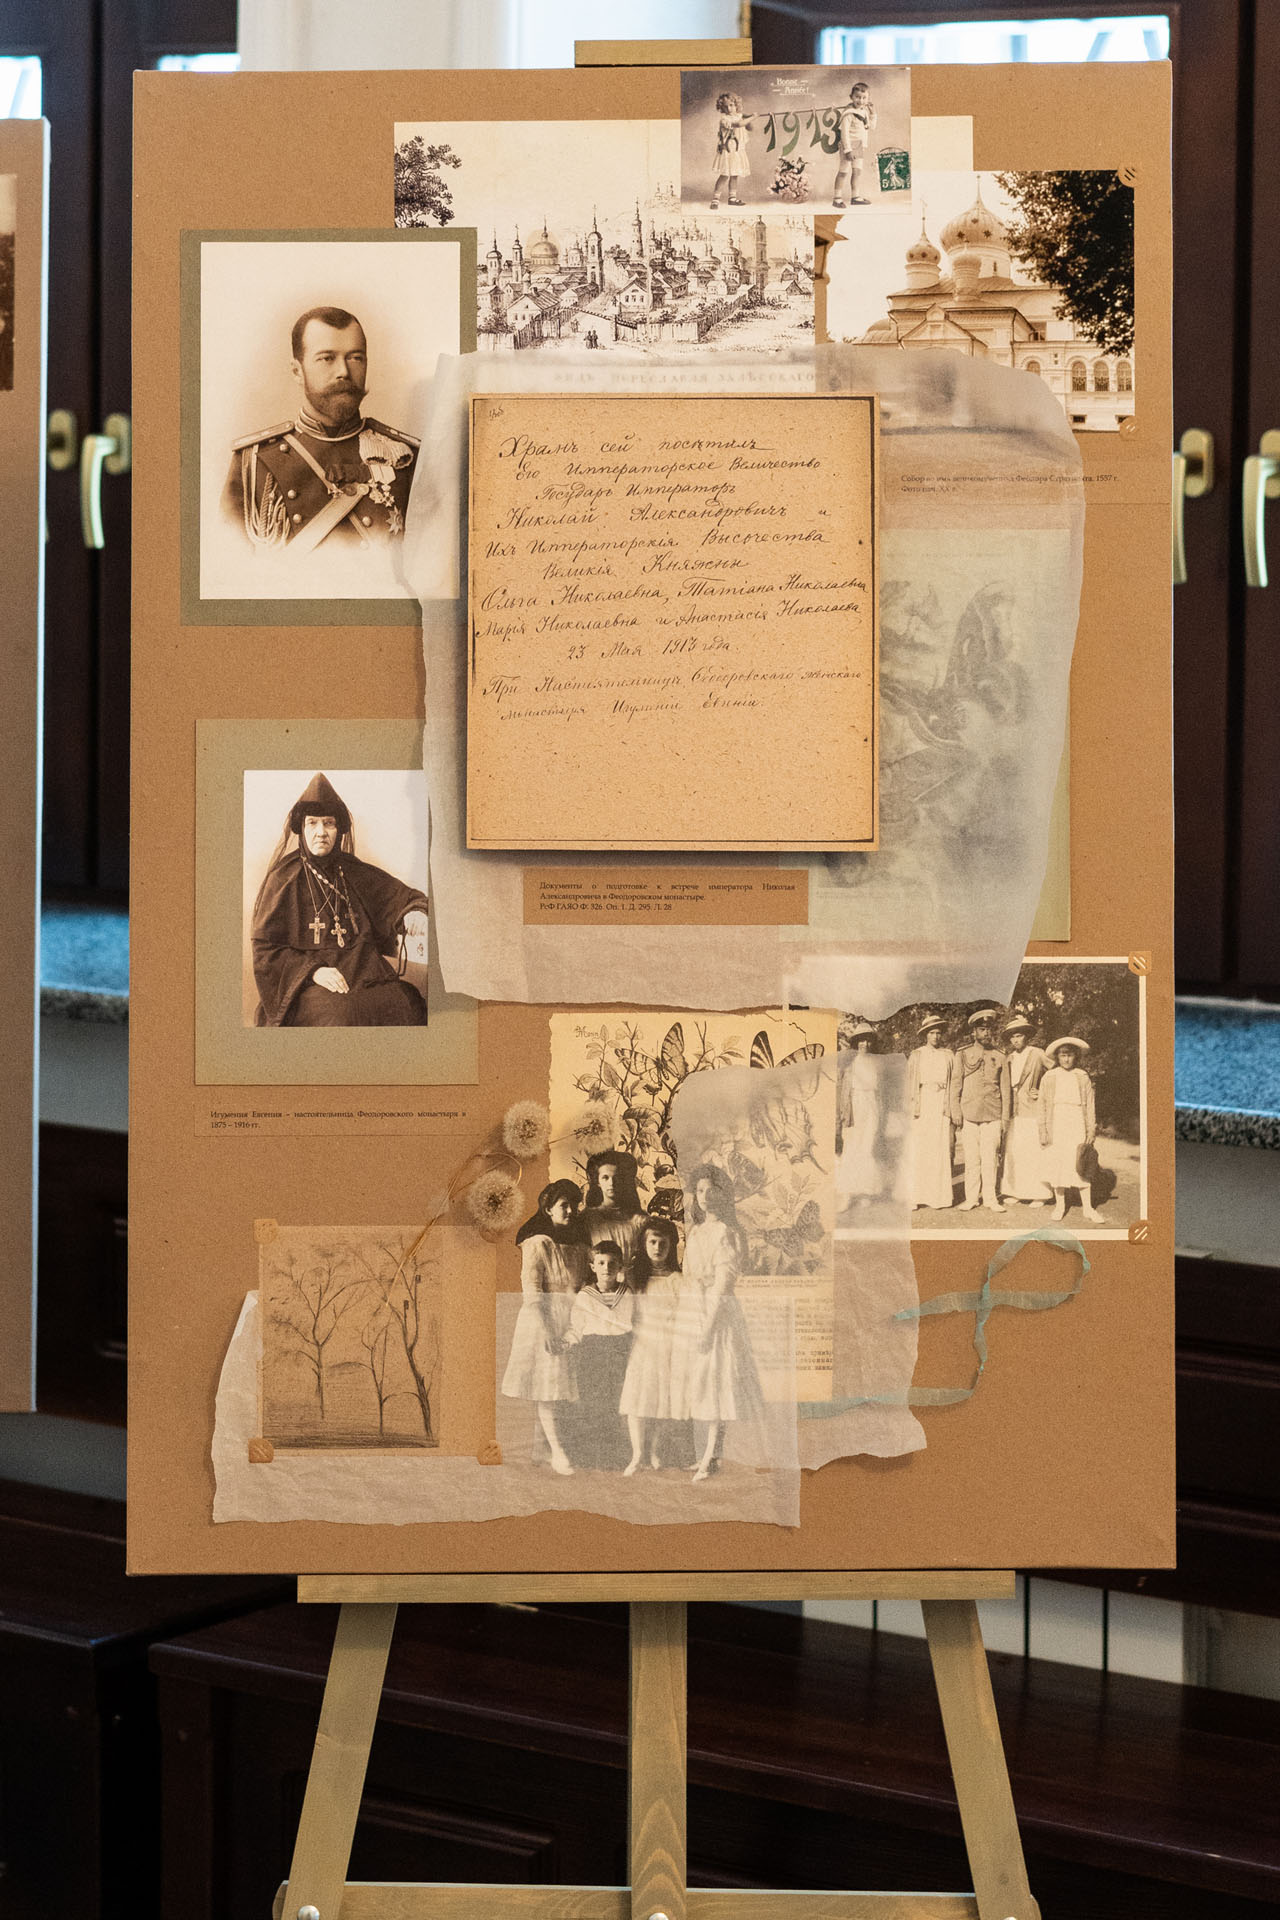 Bonne
Année!
1913
ВИДЪ ПЕРЕСЛАВЛЯ ЗАЛѢССКАГО
Собор во имя великомученика Феодора Стратилата. 1557 г.
Фото нач. XX в.
Храмъ сей посѣтилъ
Его Императорское Величество
Государь Императоръ
Николай Александровичъ и
Ихъ Императорскія Высочества
Великія Княжны
Ольга Николаевна, Татіана Николаевна
Марія Николаевна и Анастасія Николаевна
23 Мая 1913 года.
При Настоятельницѣ Ѳеодоровскаго женскаго
монастыря Игуменіи Евгеніи.
Документы о подготовке к встрече императора Николая
Александровича в Феодоровском монастыре.
РсФ ГАЯО Ф. 326. Оп. 1. Д. 295. Л. 28
Игумения Евгения – настоятельница Феодоровского монастыря в
1875 – 1916 гг.